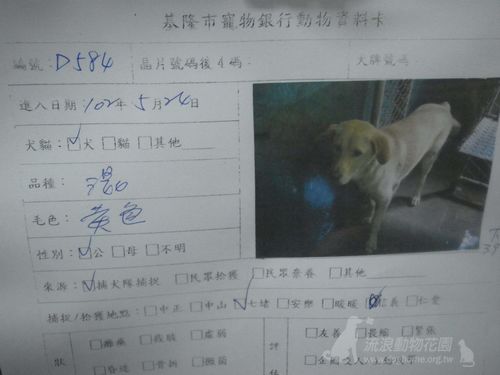 基隆市寵物銀行動物資料卡
編號：D584 晶片號碼後4碼： 犬牌號碼
進入日期：102年5月24日
犬貓：☑犬 □貓 □其他
品種：混
毛色：黃色
性別：☑公 □母 □不明
來源：☑捕犬隊捕捉 □民眾拾獲 □民眾棄養 □其他
捕捉/拾獲地點：□中正 □中山 ☑七堵 □安樂 □暖暖 信義 □仁愛
□癱瘓 □虛弱 □友善 □長縮 □緊張
狀 評
□骨折
流浪動物花園